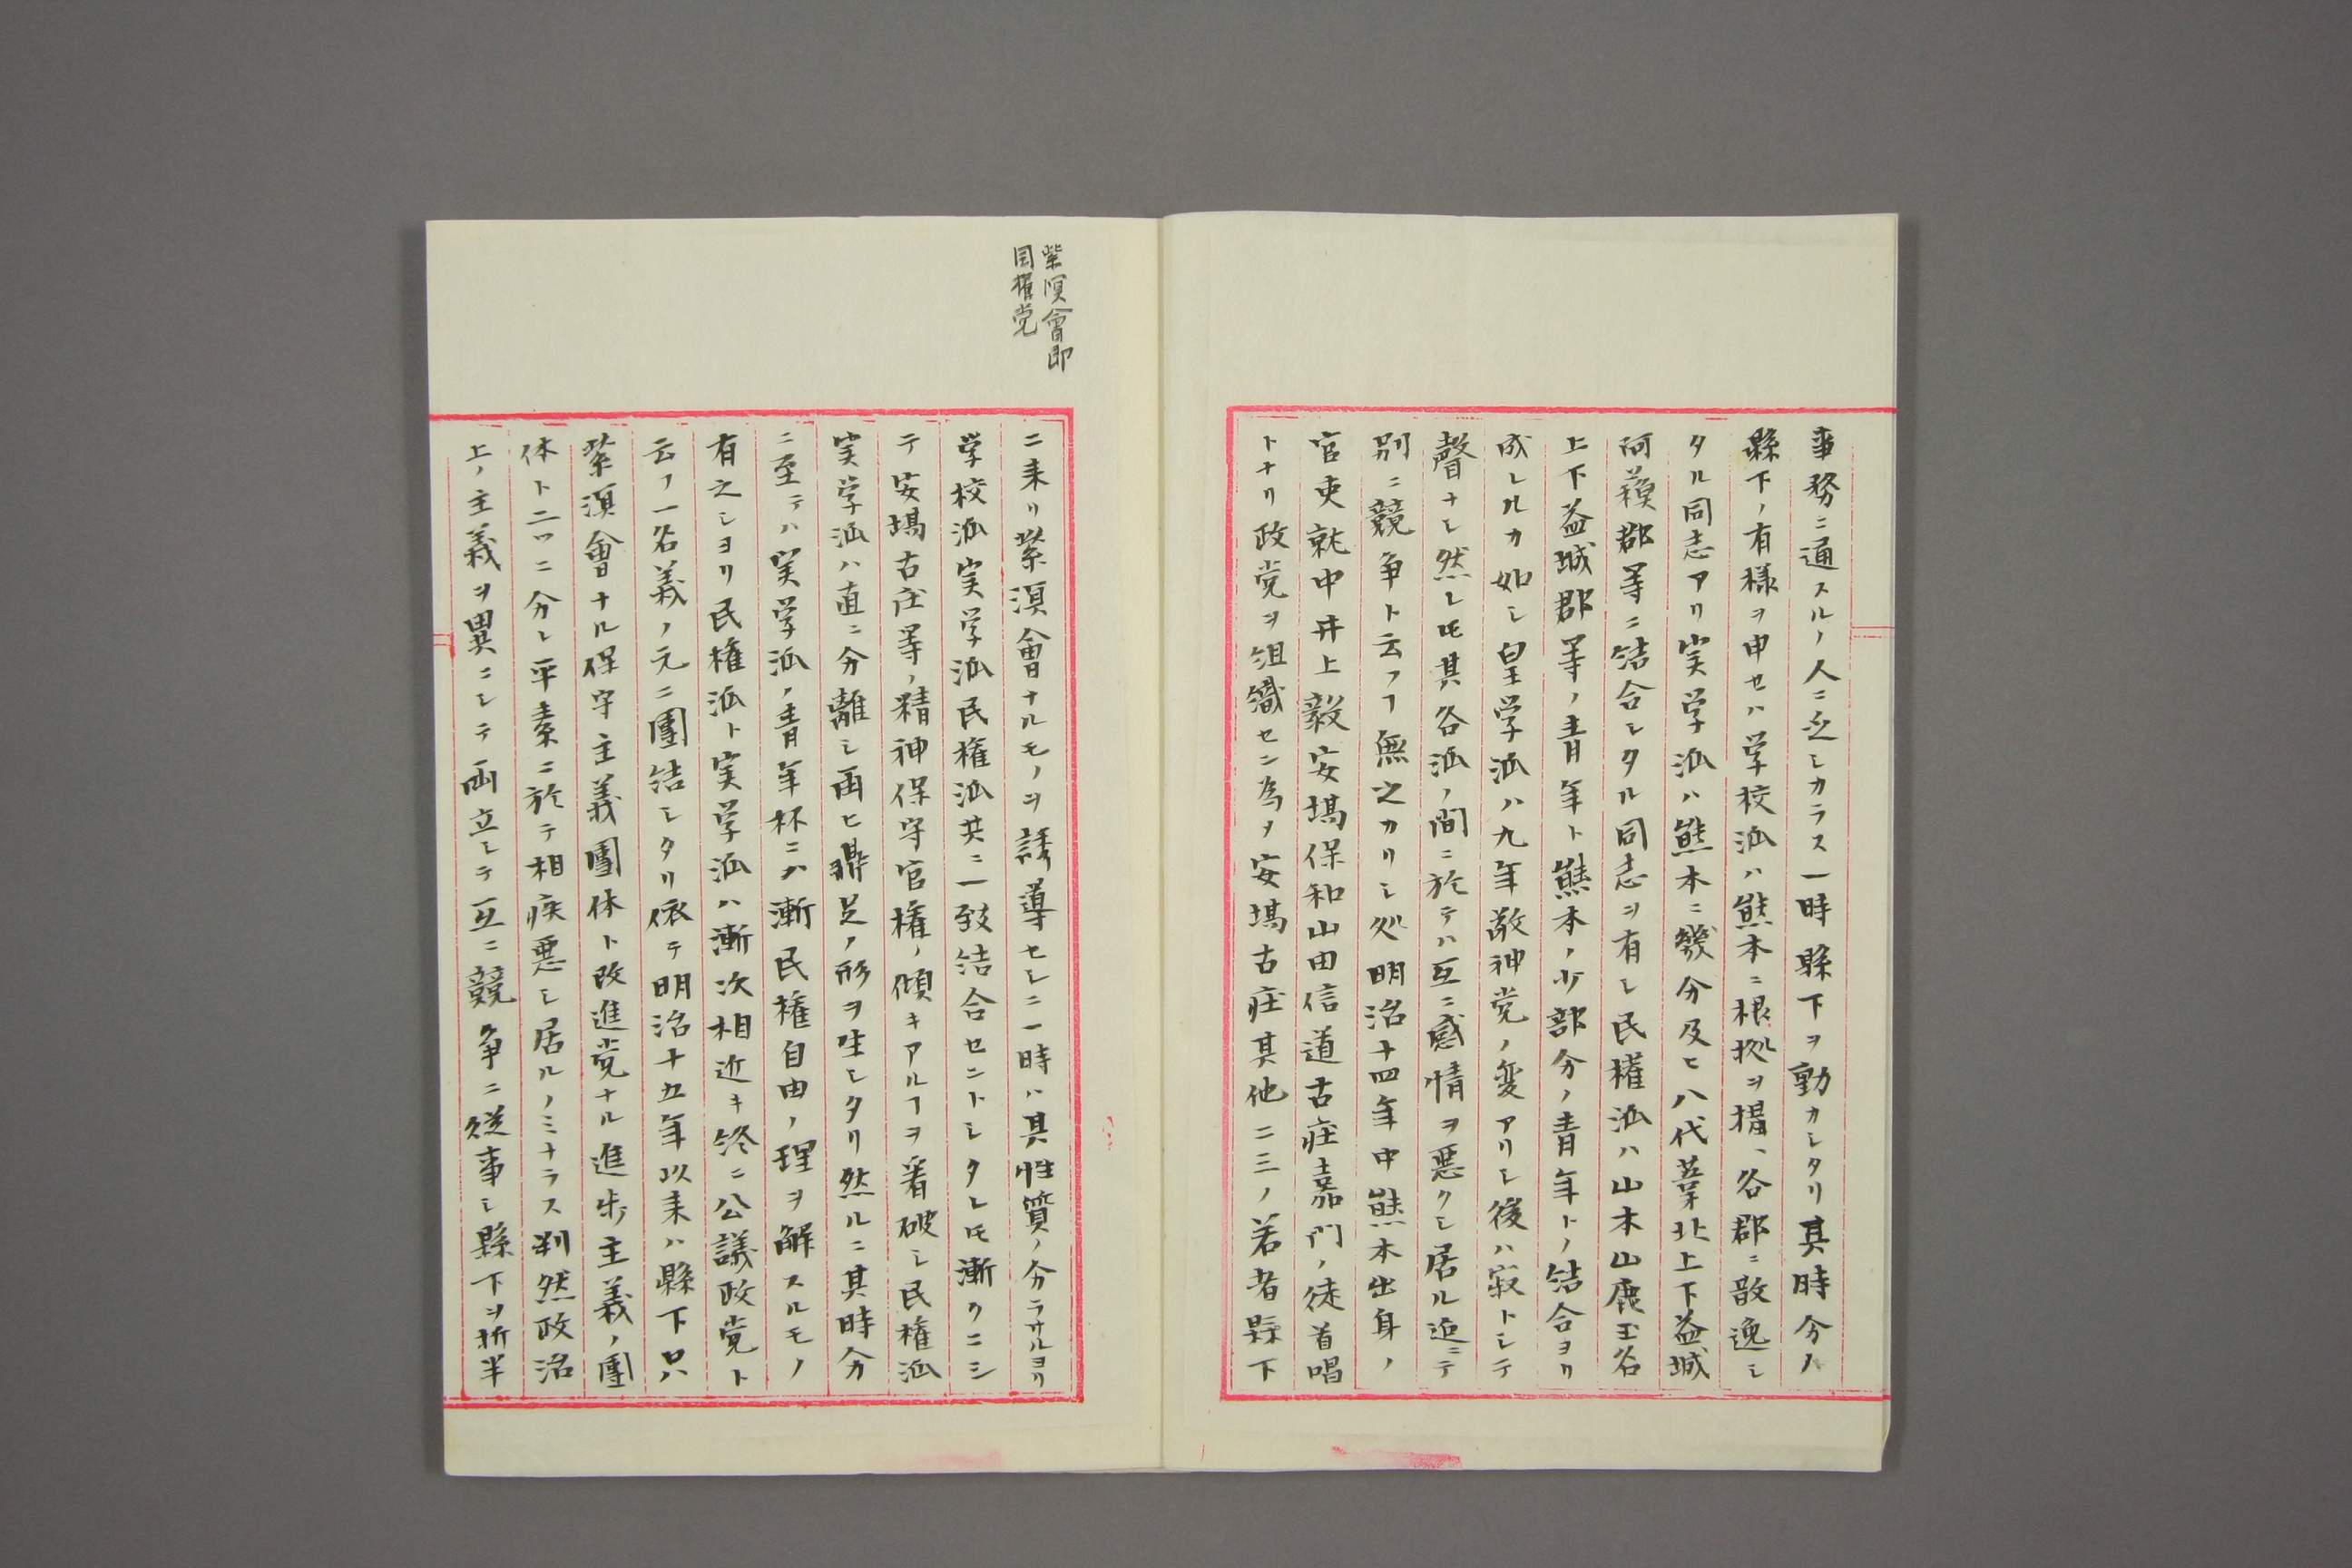 事務ニ通スルノ人ニ乏シカラス一時縣下ヲ動カシタリ其時分ノ
縣下ノ有様ヲ申セハ学校派ハ熊本ニ根拠ヲ搆ヘ各郡ニ散逸シ
タル同志アリ実学派ハ熊本ニ幾分及ヒ八代葦北上下益城
阿蘓郡等ニ結合シタル同志ヲ有シ民權派ハ山本山鹿玉名
上下益城郡等ノ青年ト熊本ノ少部分ノ青年トノ結合ヨリ
成レルカ如シ皇学派ハ九年敬神党ノ変アリシ後ハ寂トシテ
聲ナシ然レ𪜈其各派ノ間ニ於テハ互ニ感情ヲ悪クシ居ル迠ニテ
別ニ競争ト云フヿ無之カリシ処明治十四年中熊本出身ノ
官吏就中井上毅安塲保和山田信道古荘嘉門ノ徒首唱
トナリ政党ヲ組織セン為メ安塲古荘其他二三ノ若者縣下
紫溟會即
国権党
ニ来リ紫溟會ナルモノヲ誘導セシニ一時ハ其性質ノ分ラサルヨリ
学校派実学派民権派共ニ一致結合セントシタレ𪜈漸クニシ
テ安塲古庄等ノ精神保守官権ノ傾キアルヿヲ看破シ民権派
実学派ハ直ニ分離シ再ヒ鼎足ノ形ヲ生シタリ然ルニ其時分
ニ至テハ実学派ノ青年杯ニハ漸民権自由ノ理ヲ解スルモノ
有之シヨリ民権派ト実学派ハ漸次相近キ終ニ公議政党ト
云フ一名義ノ元ニ團結シタリ依テ明治十五年以来ハ縣下只
紫溟會ナル保守主義團体ト改進党ナル進歩主義ノ團
体ト二ツニ分レ平素ニ於テ相疾悪シ居ルノミナラス判然政治
上ノ主義ヲ異ニシテ両立シテ互ニ競争ニ従事シ縣下ヲ折半